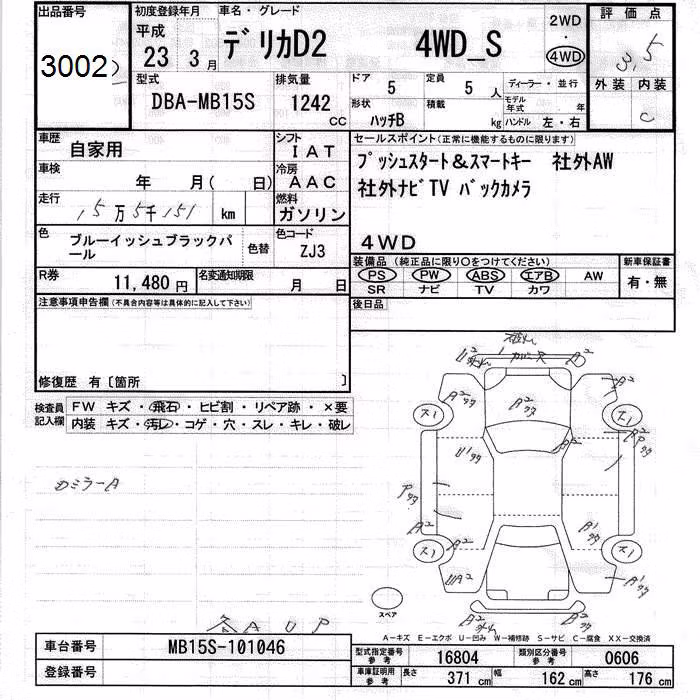 出品番号
3002
初度登録年月
平成
23 3月
車名・グレード
デリカD2 4WD_S
2WD
・
4WD
評価点
3.5
外装 内装
C
型式
DBA-MB15S
排気量
1242
CC
ドア
5
定員
5 人
ディーラー・並行
形状
ハッチB
積載
kg
モデル年式 ・ 年
ハンドル 左・右
車歴
自家用
シフト
IAT
車検
年 月( 日)
冷房
AAC
走行
5万5千151 km
燃料
ガソリン
色
ブルーイッシュブラックパ
ール
色替
色コード
ZJ3
R券
11,480円
名変通知期限
月 日
セールスポイント(正常に機能するものに限ります)
プッシュスタート&スマートキー 社外AW
社外ナビTV バックカメラ
4WD
装備品(純正品に限り○をつけてください)
PS PW ABS エアB AW
SR ナビ TV カワ
新車保証書
有・無
後日品
注意事項申告欄(不具合内容等は具体的に記入して下さい)
修復歴 有〔箇所 〕
検査員
記入欄
FW キズ・飛石・ヒビ割・リペア跡・×要
内装 キズ・汚レ・コゲ・穴・スレ・キレ・破レ
カミラーA
各AUP
スペア
A-キズ E-エクボ U-凹み W-補修跡 S-サビ C-腐食 XX-交換済
車台番号
MB15S-101046
登録番号
型式指定番号
参考
16804
類別区分番号
参考
0606
車庫証明用
参考
長さ 371 cm 幅 162 cm 高さ 176 cm